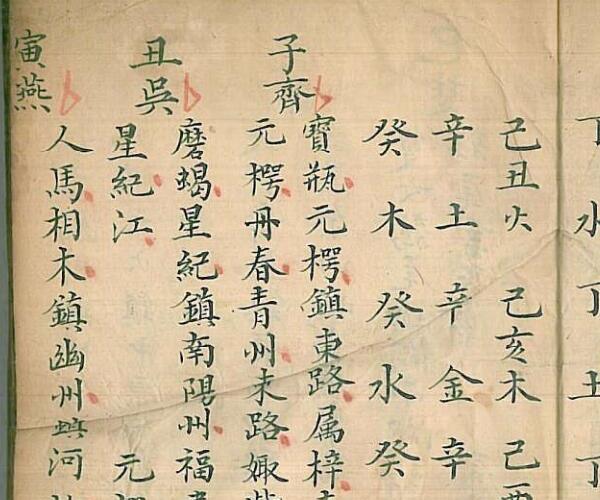 丁 水 丁 土 丁
己丑火 己亥木 己酉
辛 土 辛 金 辛
癸 木 癸 水 癸
子齊
寶瓶元楞鎮東路属梓
元楞丹春青州未路娵
丑吳
磨蝎星紀鎮南陽州福
星紀江 元
寅燕
人馬相木鎮幽州 河